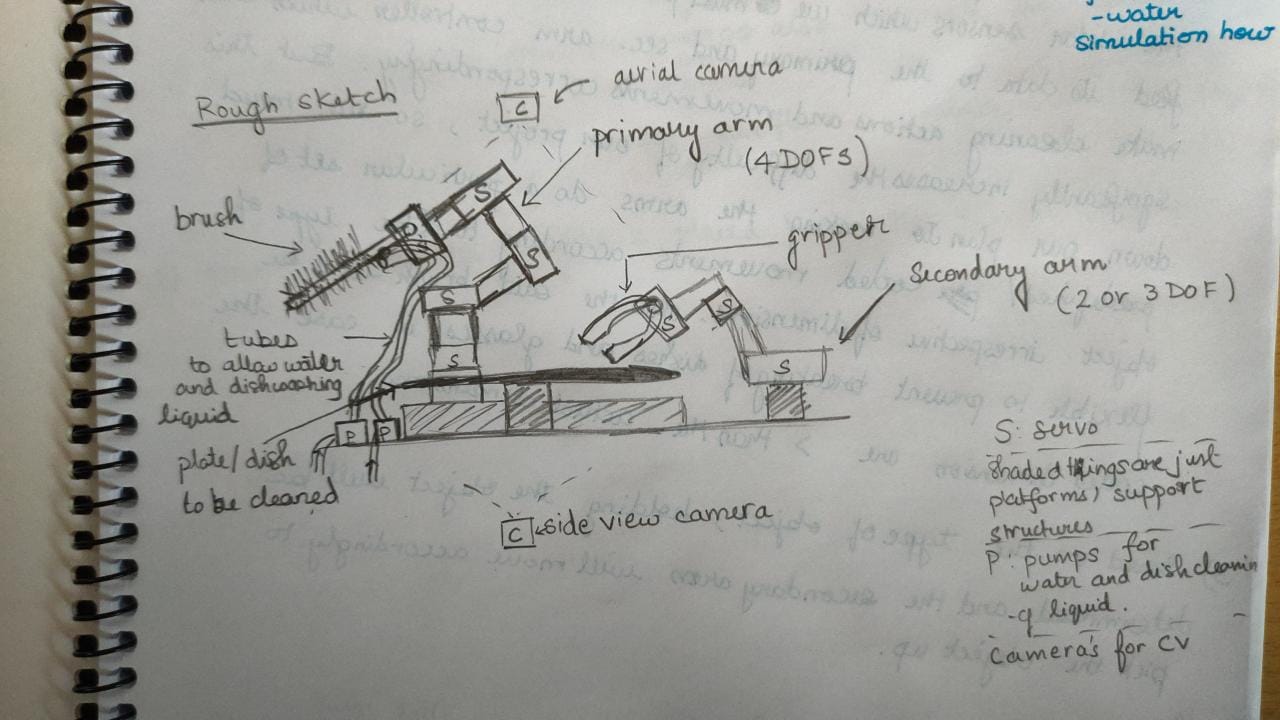 -water
simulation how
Rough sketch
C
aerial camera
primary arm
(4 DOFS)
brush
gripper
secondary arm
(2 or 3 DOF)
S
S
S
S
S
S
S
tubes
to allow water
and dishwashing
liquid
plate/dish
to be cleaned
P
P
C
side view camera
S: servo
shaded things are just
platforms, support
structures
P: pumps for
water and dishcleanin
-g liquid.
camera's for CV